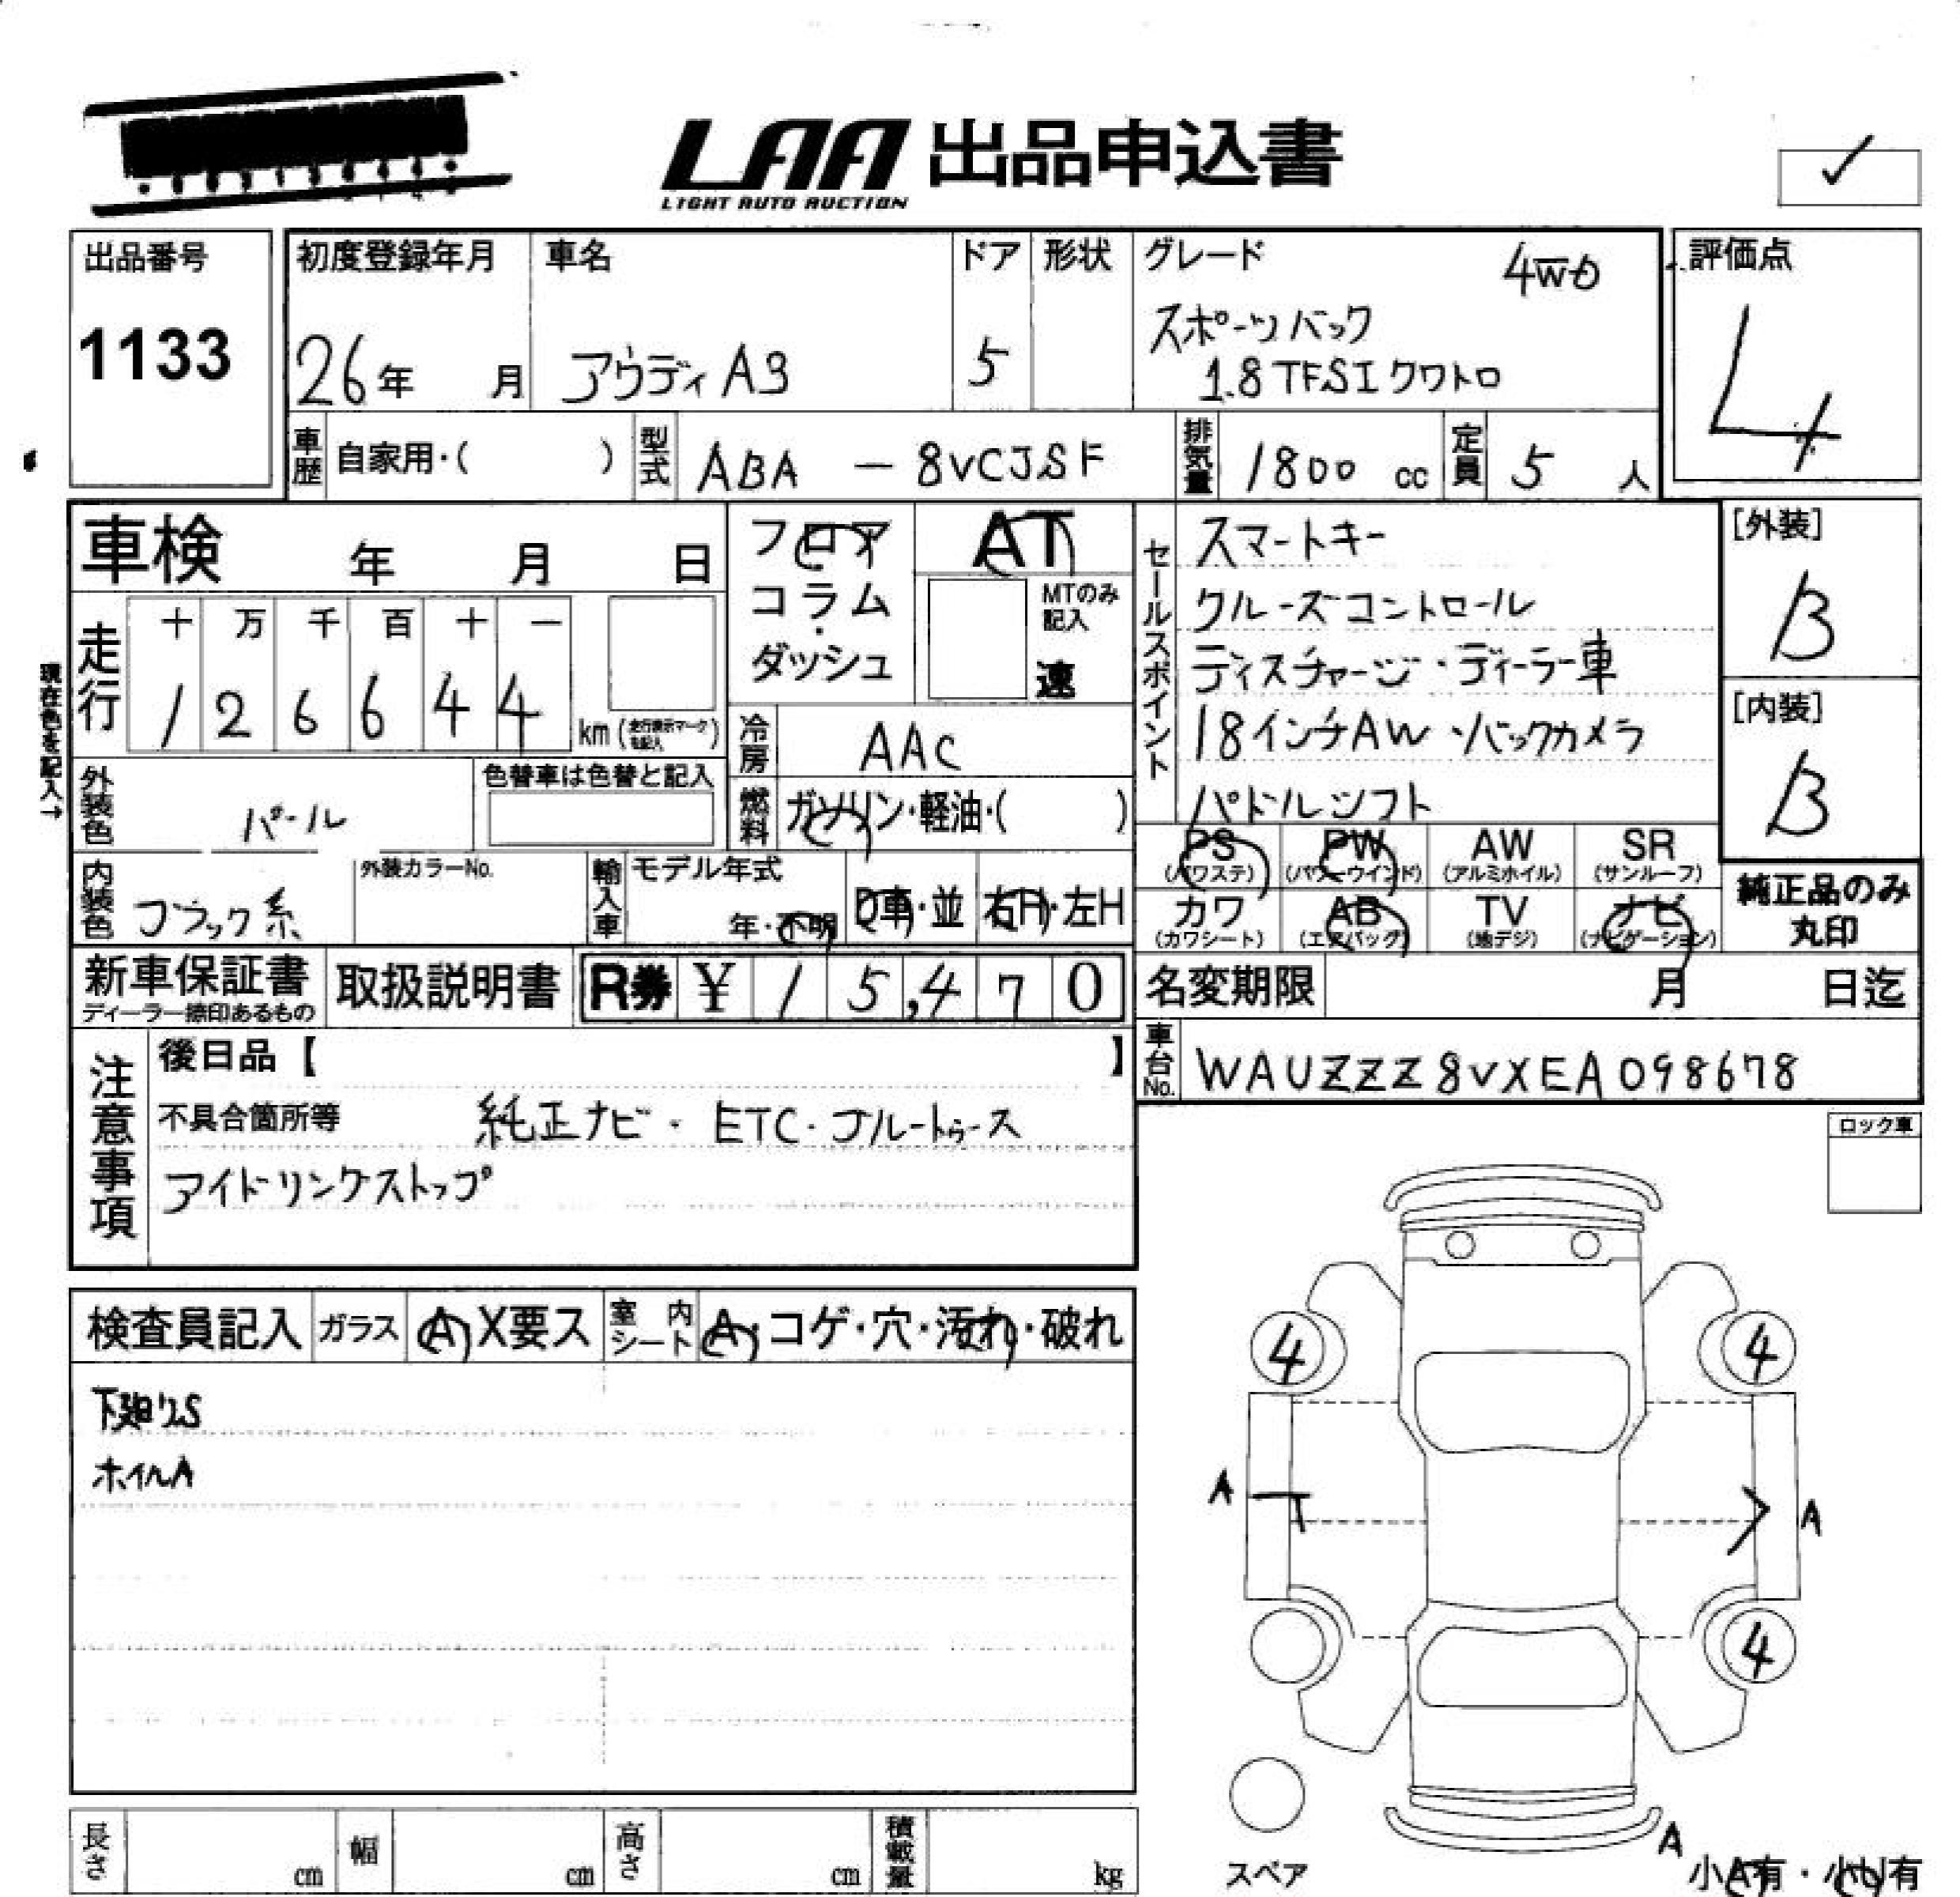 LAA 出品申込書
LIGHT AUTO AUCTION
出品番号
1133
初度登録年月
26年 月
車名
アウディ A3
ドア
5
形状
グレード 4WD
スポーツバック
1.8 TFSI クワトロ
評価点
4
車歴 自家用・( )
型式 ABA - 8VCJSF
排気量 1800 cc
定員 5 人
車検 年 月 日
フロア・コラム・ダッシュ
AT
MTのみ記入
速
走行
十 万 千 百 十 一
1 2 6 6 4 4 km (走行表示マークを記入)
現在色を記入→
冷房 AAC
燃料 ガソリン・軽油・( )
外装色 パール
色替車は色替と記入
内装色 ブラック系
外装カラーNo.
輸入車 モデル年式
年・不明
D車・並
右H・左H
セールスポイント
スマートキー
クルーズコントロール
ディスチャージ・ディーラー車
18インチAW・バックカメラ
パドルシフト
[外装]
B
[内装]
B
PS (パワステ) PW (パワーウインド) AW (アルミホイル) SR (サンルーフ)
カワ (カワシート) AB (エアバッグ) TV (地デジ) ナビ (ナビゲーション)
純正品のみ
丸印
新車保証書
ディーラー捺印あるもの
取扱説明書
R券 ¥ 15,470
名変期限 月 日迄
車台No. WAUZZZ8VXEA098678
注意事項
後日品【 】
不具合箇所等 純正ナビ・ETC・ブルートゥース
アイドリングストップ
ロック車
検査員記入 ガラス A X要ス 室内シート A・コゲ・穴・汚れ・破れ
下廻りS
ホイルA
4 4
A A
4
A
スペア
小A有・小U有
長さ cm 幅 cm 高さ cm 積載量 kg